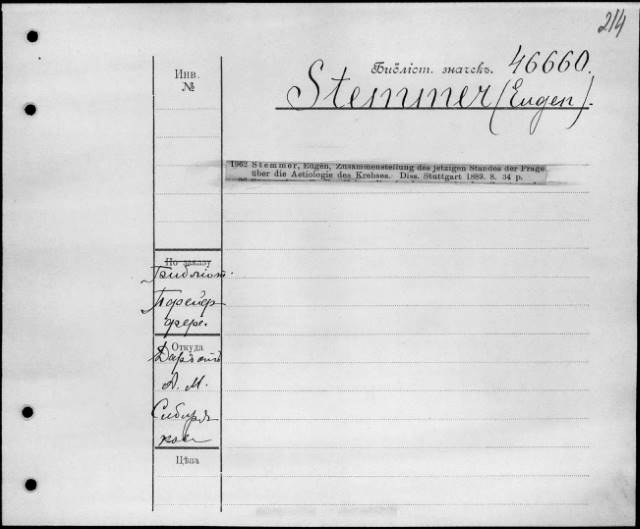 214
Библіот. значекъ. 46660.
Инв. №
Stemmer (Eugen).
1962 Stemmer, Eugen, Zusammenstellung des jetzigen Standes der Frage
über die Aetiologie des Krebses. Diss. Stuttgart 1889. 8. 34 p.
По заказу
Библіот.
Откуда
Даръ отъ
А. М.
Сибиряко
Цѣна